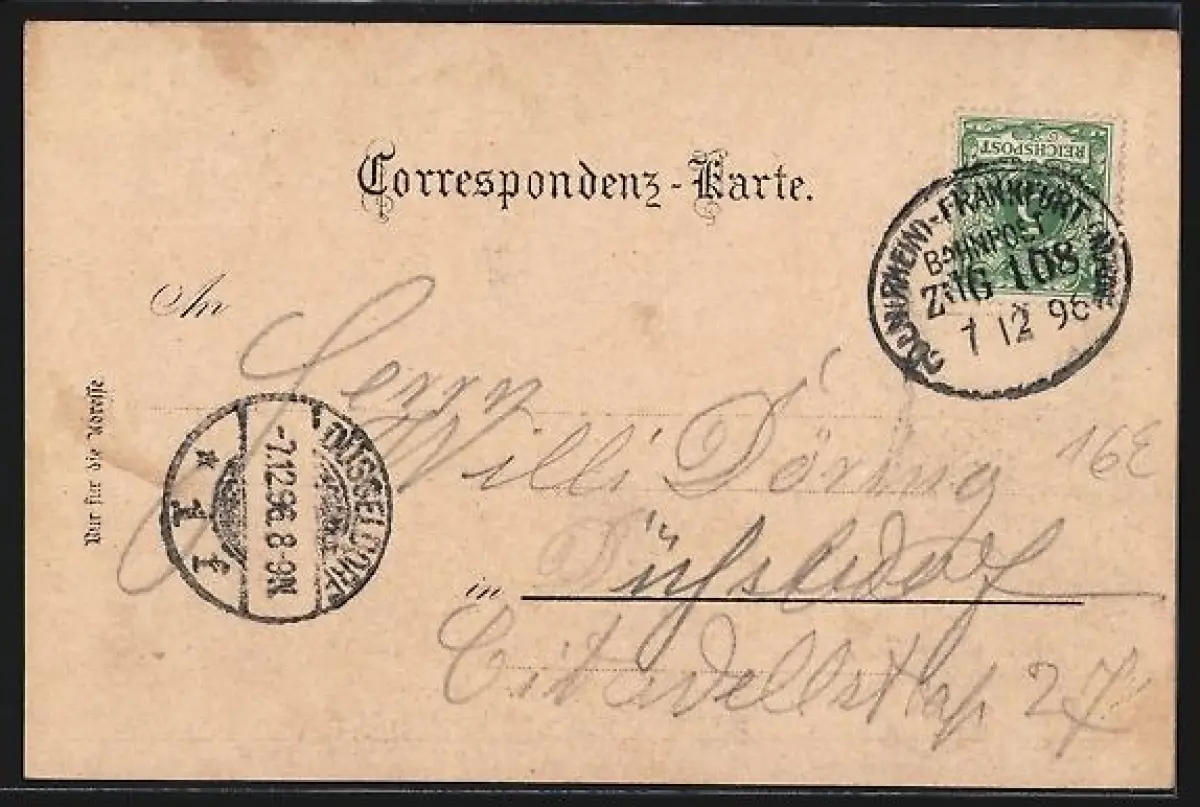 Correspondenz-Karte.
REICHSPOST
5
CÖLN (RHEIN)-FRANKFURT (MAIN)
BAHNPOST
ZUG 108
7 12 96
An
Herrn
Willi Döring
16E
in Düsseldorf
Citadellstr. 27
Nur für die Adresse
DÜSSELDORF
-7.12.96.8-9N
* 1 f